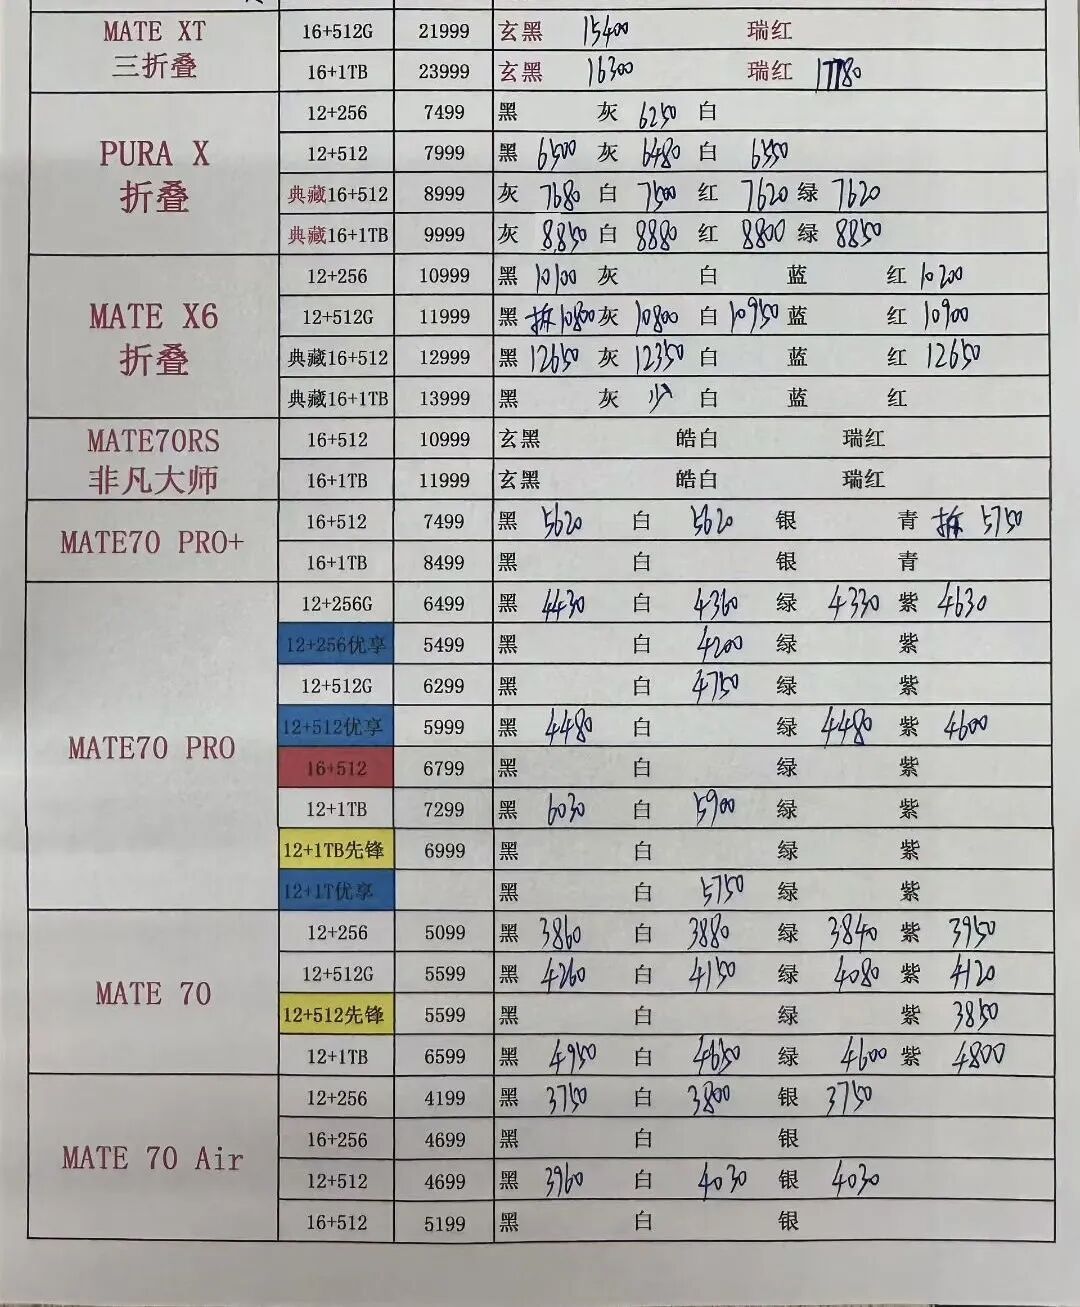 MATE XT 16+512G 21999 玄黑 15400 瑞红
三折叠 16+1TB 23999 玄黑 16300 瑞红 17780
12+256 7499 黑 灰 6250 白
PURA X 12+512 7999 黑 6500 灰 6480 白 6550
折叠 典藏16+512 8999 灰 7680 白 7500 红 7620 绿 7620
典藏16+1TB 9999 灰 8850 白 8880 红 8800 绿 8850
12+256 10999 黑 10100 灰 白 蓝 红 10200
MATE X6 12+512G 11999 黑 拆10800 灰 10800 白 10950 蓝 红 10900
折叠 典藏16+512 12999 黑 12650 灰 12350 白 蓝 红 12650
典藏16+1TB 13999 黑 灰 少 白 蓝 红
MATE70RS 16+512 10999 玄黑 皓白 瑞红
非凡大师 16+1TB 11999 玄黑 皓白 瑞红
MATE70 PRO+ 16+512 7499 黑 5620 白 5620 银 青 拆 5750
16+1TB 8499 黑 白 银 青
12+256G 6499 黑 4430 白 4360 绿 4330 紫 4630
12+256优享 5499 黑 白 4200 绿 紫
12+512G 6299 黑 白 4750 绿 紫
MATE70 PRO 12+512优享 5999 黑 4480 白 绿 4480 紫 4600
16+512 6799 黑 白 绿 紫
12+1TB 7299 黑 6030 白 5900 绿 紫
12+1TB先锋 6999 黑 白 绿 紫
12+1T优享 黑 白 5750 绿 紫
12+256 5099 黑 3860 白 3880 绿 3840 紫 3950
MATE 70 12+512G 5599 黑 4260 白 4150 绿 4080 紫 4120
12+512先锋 5599 黑 白 绿 紫 3850
12+1TB 6599 黑 4950 白 4650 绿 4600 紫 4800
12+256 4199 黑 3750 白 3800 银 3750
MATE 70 Air 16+256 4699 黑 白 银
12+512 4699 黑 3960 白 4030 银 4030
16+512 5199 黑 白 银